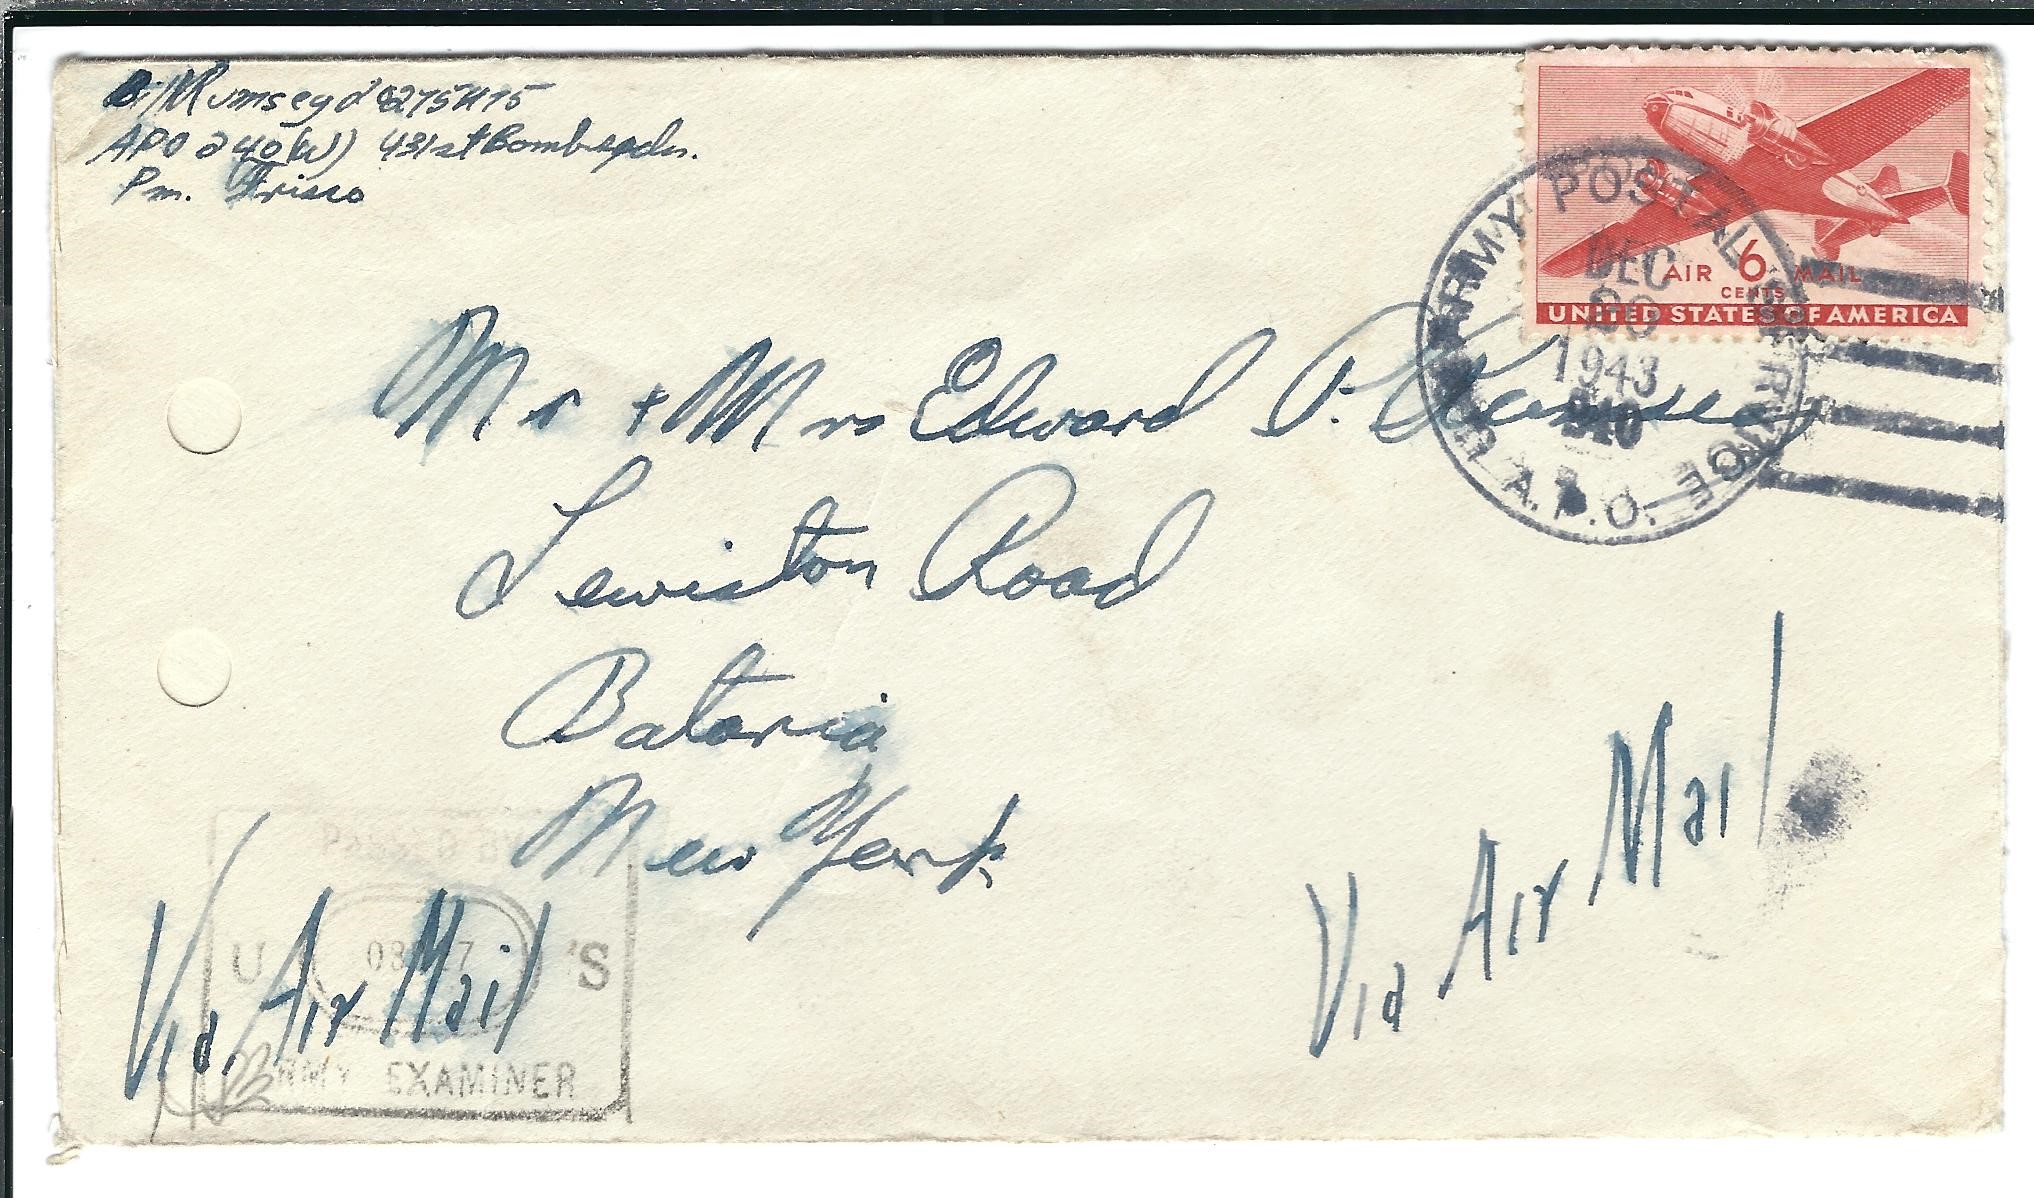 Rumsey
APO 240 (W) 431st Bomb Sqdn.
Pm. Frisco
AIR 6 MAIL
CENTS
UNITED STATES OF AMERICA
ARMY POSTAL SERVICE
DEC
20
1943
A.P.O.
Mr + Mrs Edward P. Rumsey
Lewiston Road
Batavia
New York
Via Air Mail
PASSED BY
U 'S
ARMY EXAMINER
Via Air Mail